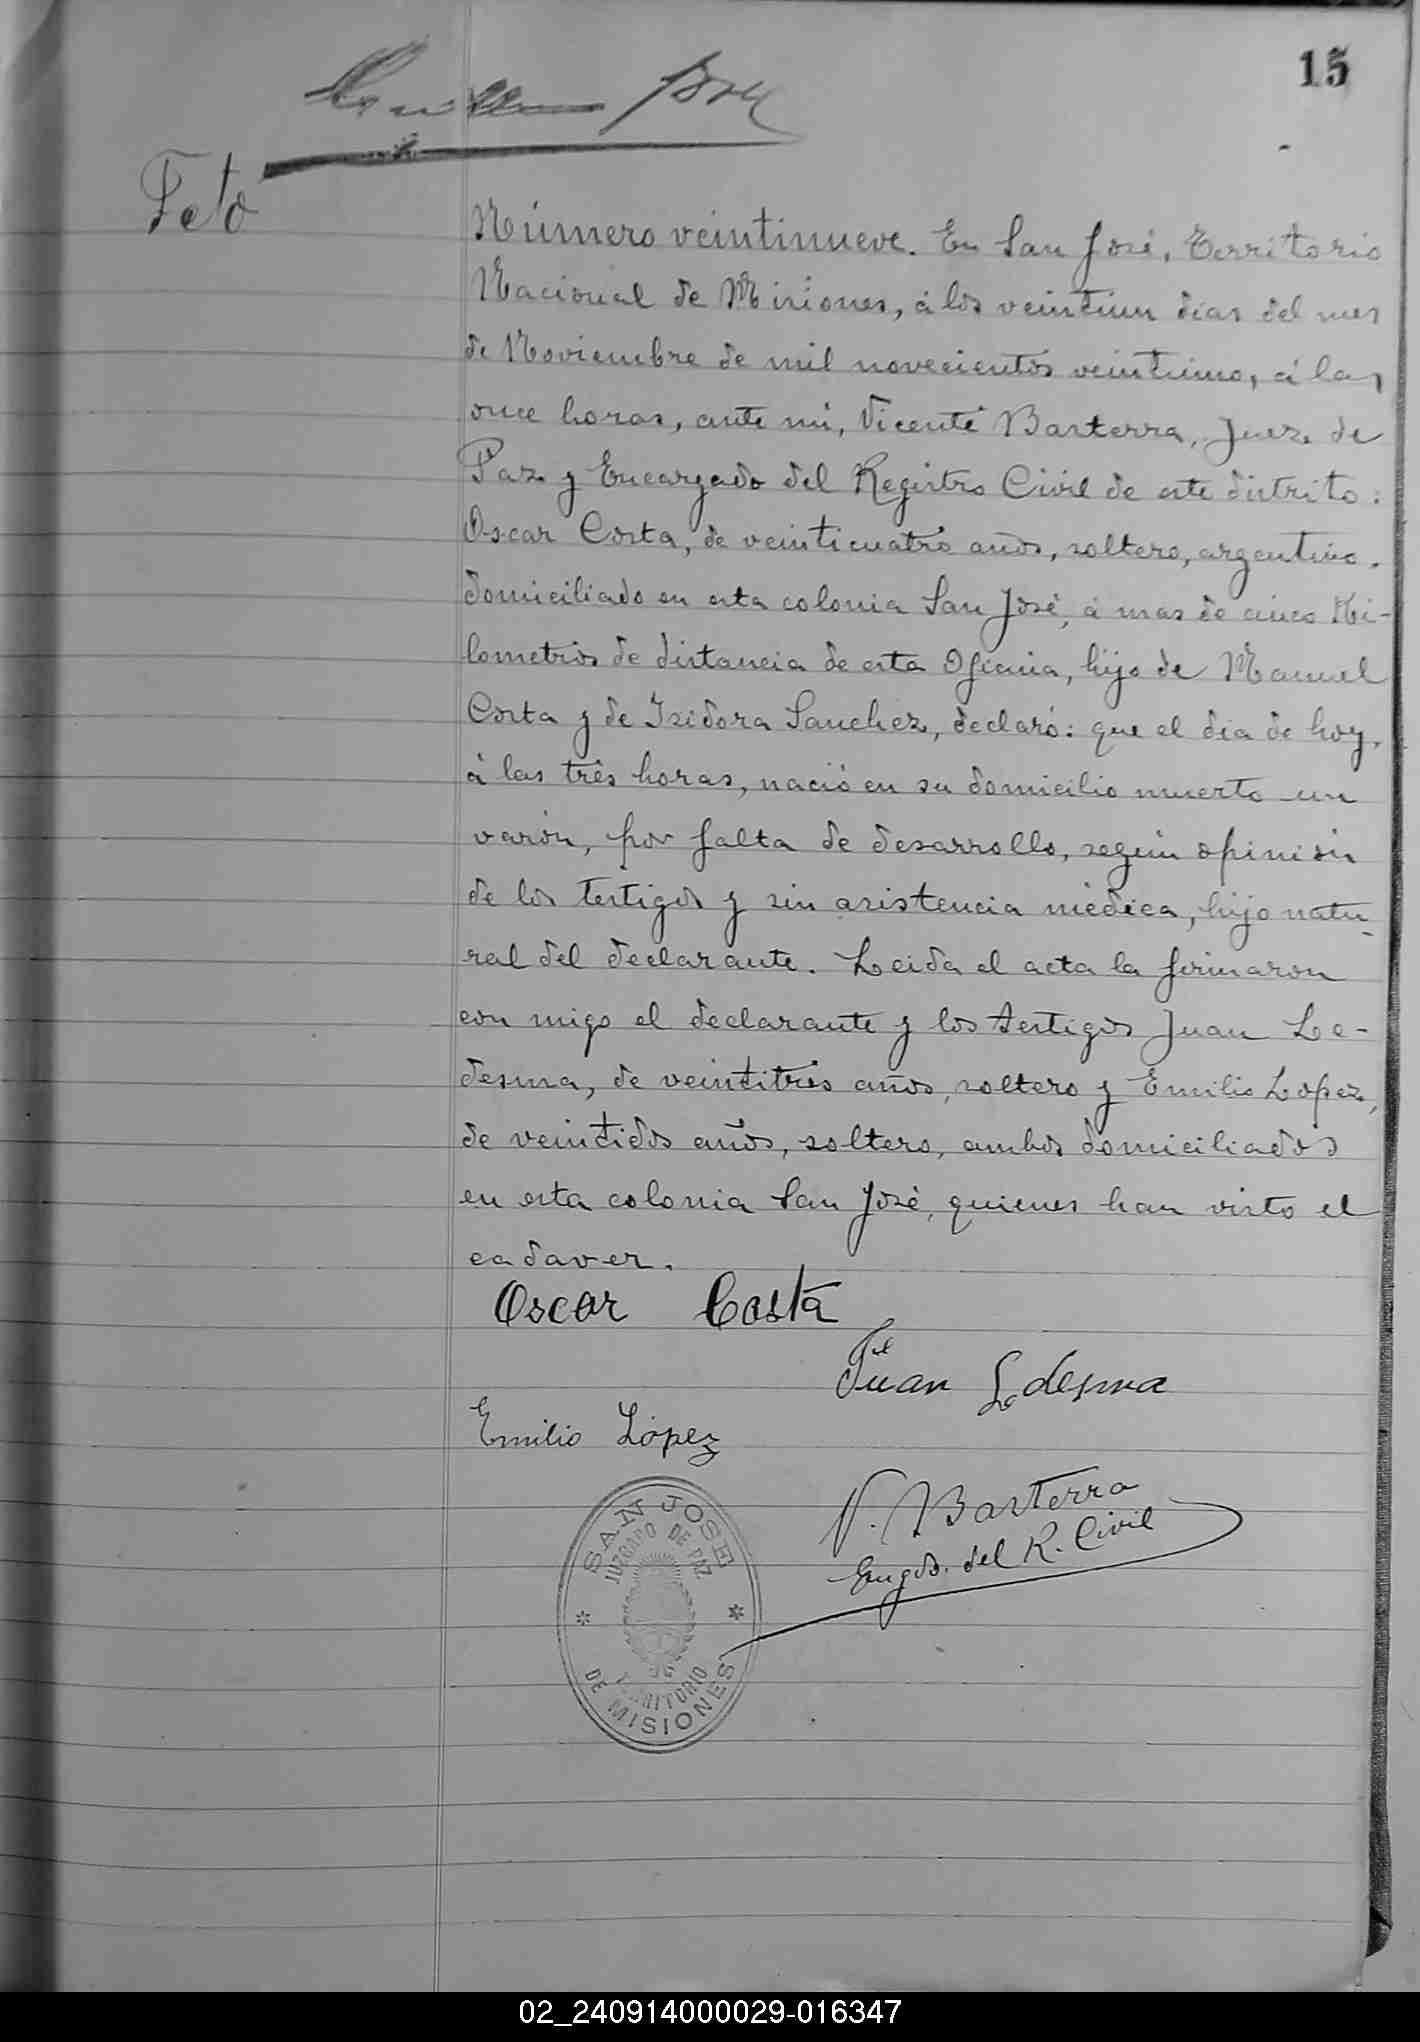 15
Feto
Número veintinueve. En San José, Territorio
Nacional de Misiones, á los veintiun dias del mes
de Noviembre de mil novecientos veintiuno, á las
once horas, ante mi, Vicente Basterra, Juez de
Paz y Encargado del Registro Civil de este distrito:
Oscar Costa, de veinticuatro años, soltero, argentino,
domiciliado en esta colonia San José, á mas de cinco Ki-
lometros de distancia de esta Oficina, hijo de Manuel
Costa y de Izidora Sanchez, declaró: que el dia de hoy,
á las três horas, nació en su domicilio muerto un
varón, por falta de desarrollo, según opinión
de los testigos y sin asistencia médica, hijo natu-
ral del declarante. Leida el acta la firmaron
con migo el declarante y los testigos Juan Le-
desma, de veintitrés años, soltero y Emilio Lopez,
de veintidos años, soltero, ambos domiciliados
en esta colonia San José, quienes han visto el
cadaver.
Oscar Costa
Juan Ledesma
Emilio López
V. Basterra
Engdo. del R. Civil
SAN JOSE
JUZGADO DE PAZ
TERRITORIO
DE MISIONES
02_240914000029-016347